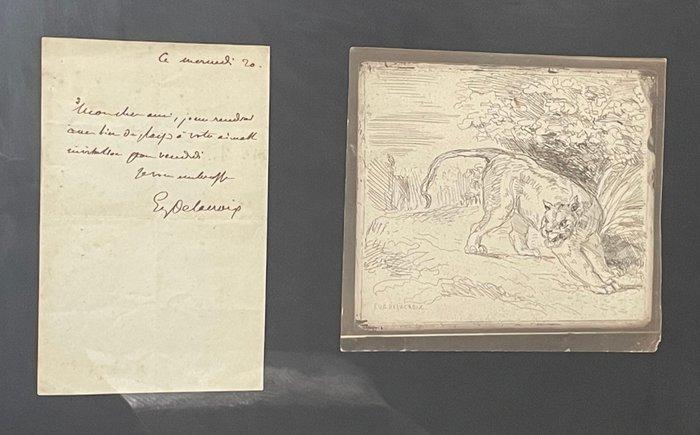 Ce mercredi 20.
Mon cher ami, je me rendrai
avec bien du plaisir à votre aimable
invitation pour vendredi
Je vous embrasse
Eug Delacroix
EUG. DELACROIX